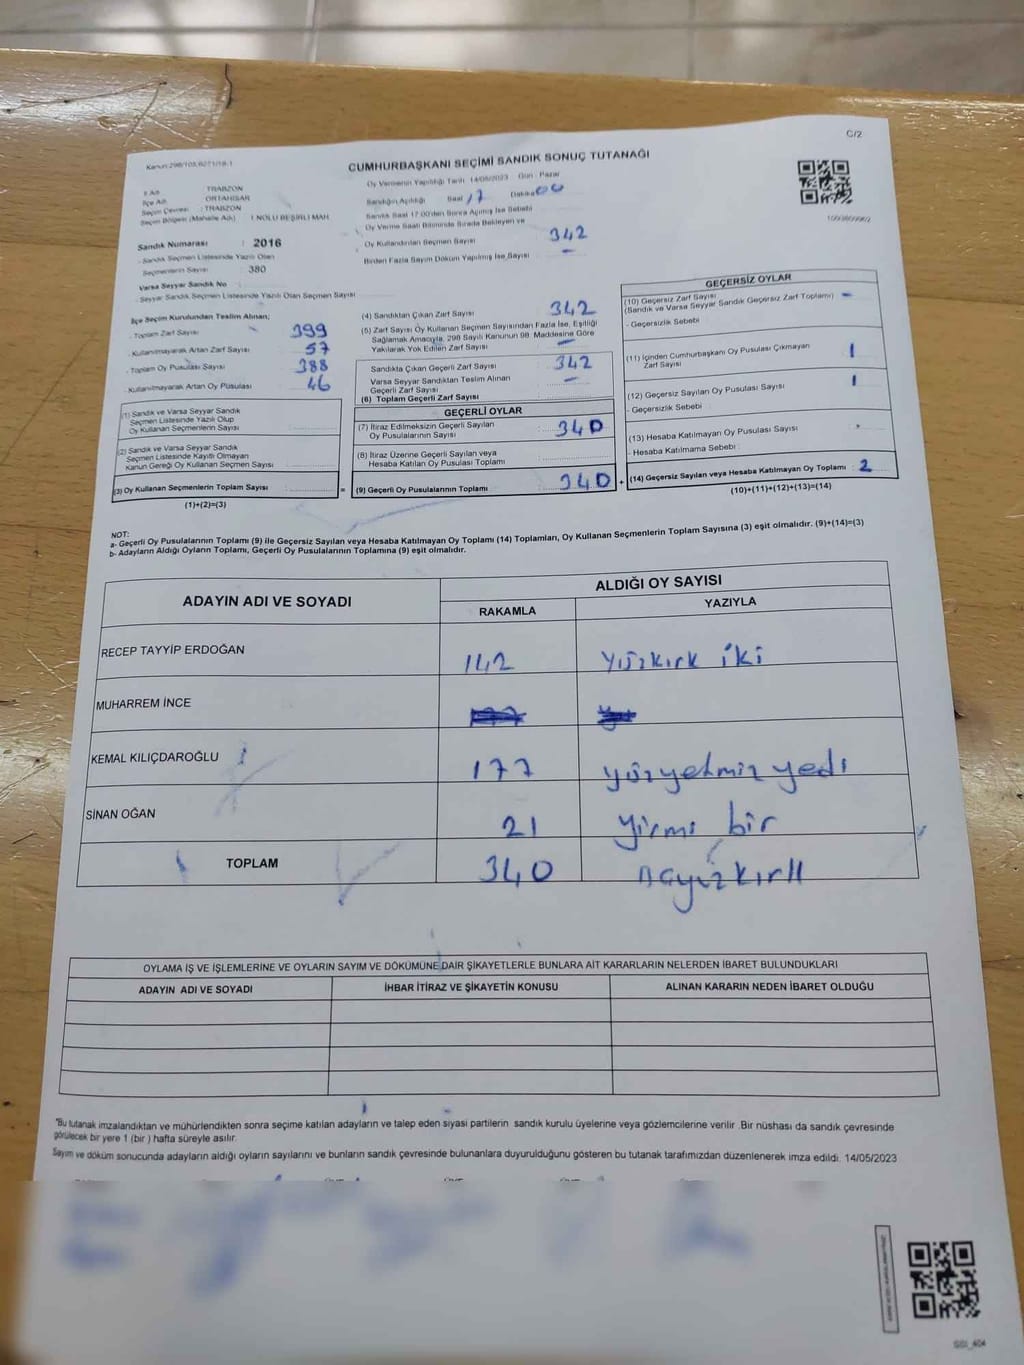 C/2
Kanun:298/105,6271/18-1
CUMHURBAŞKANI SEÇİMİ SANDIK SONUÇ TUTANAĞI
İl Adı : TRABZON
İlçe Adı : ORTAHİSAR
Seçim Çevresi : TRABZON
Seçim Bölgesi (Mahalle Adı) 1 NOLU BEŞİRLİ MAH.
Sandık Numarası : 2016
Sandık Seçmen Listesinde Yazılı Olan
Seçmenlerin Sayısı : 380
Varsa Seyyar Sandık No :
Seyyar Sandık Seçmen Listesinde Yazılı Olan Seçmen Sayısı
Oy Vermenin Yapıldığı Tarih 14/05/2023 Gün : Pazar
Sandığın Açıldığı Saat 17 Dakika 00
Sandık Saat 17.00'den Sonra Açılmış İse Sebebi
Oy Verme Saati Bitiminde Sırada Bekleyen ve
Oy Kullandırılan Seçmen Sayısı : 342
Birden Fazla Sayım Döküm Yapılmış İse Sayısı –
İlçe Seçim Kurulundan Teslim Alınan;
Toplam Zarf Sayısı 399
Kullanılmayarak Artan Zarf Sayısı 57
Toplam Oy Pusulası Sayısı 388
Kullanılmayarak Artan Oy Pusulası 46
(1) Sandık ve Varsa Seyyar Sandık
Seçmen Listesinde Yazılı Olup
Oy Kullanan Seçmenlerin Sayısı
(2) Sandık ve Varsa Seyyar Sandık
Seçmen Listesinde Kayıtlı Olmayan
Kanun Gereği Oy Kullanan Seçmen Sayısı
(3) Oy Kullanan Seçmenlerin Toplam Sayısı =
(1)+(2)=(3)
(4) Sandıktan Çıkan Zarf Sayısı 342
(5) Zarf Sayısı Oy Kullanan Seçmen Sayısından Fazla İse, Eşitliği
Sağlamak Amacıyla, 298 Sayılı Kanunun 98. Maddesine Göre
Yakılarak Yok Edilen Zarf Sayısı –
Sandıkta Çıkan Geçerli Zarf Sayısı 342
Varsa Seyyar Sandıktan Teslim Alınan
Geçerli Zarf Sayısı –
(6) Toplam Geçerli Zarf Sayısı
GEÇERLİ OYLAR
(7) İtiraz Edilmeksizin Geçerli Sayılan
Oy Pusulalarının Sayısı 340
(8) İtiraz Üzerine Geçerli Sayılan veya
Hesaba Katılan Oy Pusulası Toplamı
(9) Geçerli Oy Pusulalarının Toplamı 340 +
GEÇERSİZ OYLAR
(10) Geçersiz Zarf Sayısı
(Sandık ve Varsa Seyyar Sandık Geçersiz Zarf Toplamı) –
- Geçersizlik Sebebi :
(11) İçinden Cumhurbaşkanı Oy Pusulası Çıkmayan
Zarf Sayısı 1
(12) Geçersiz Sayılan Oy Pusulası Sayısı 1
- Geçersizlik Sebebi :
(13) Hesaba Katılmayan Oy Pusulası Sayısı
- Hesaba Katılmama Sebebi :
(14) Geçersiz Sayılan veya Hesaba Katılmayan Oy Toplamı : 2
(10)+(11)+(12)+(13)=(14)
NOT:
a- Geçerli Oy Pusulalarının Toplamı (9) ile Geçersiz Sayılan veya Hesaba Katılmayan Oy Toplamı (14) Toplamları, Oy Kullanan Seçmenlerin Toplam Sayısına (3) eşit olmalıdır. (9)+(14)=(3)
b- Adayların Aldığı Oyların Toplamı, Geçerli Oy Pusulalarının Toplamına (9) eşit olmalıdır.
ADAYIN ADI VE SOYADI
ALDIĞI OY SAYISI
RAKAMLA YAZIYLA
RECEP TAYYİP ERDOĞAN 142 yüzkırk iki
MUHARREM İNCE
KEMAL KILIÇDAROĞLU 177 yüzyetmiz yedi
SİNAN OĞAN 21 yirmi bir
TOPLAM 340
OYLAMA İŞ VE İŞLEMLERİNE VE OYLARIN SAYIM VE DÖKÜMÜNE DAİR ŞİKAYETLERLE BUNLARA AİT KARARLARIN NELERDEN İBARET BULUNDUKLARI
ADAYIN ADI VE SOYADI İHBAR İTİRAZ VE ŞİKAYETİN KONUSU ALINAN KARARIN NEDEN İBARET OLDUĞU
*Bu tutanak imzalandıktan ve mühürlendikten sonra seçime katılan adayların ve talep eden siyasi partilerin sandık kurulu üyelerine veya gözlemcilerine verilir. Bir nüshası da sandık çevresinde
görülecek bir yere 1 (bir ) hafta süreyle asılır.
Sayım ve döküm sonucunda adayların aldığı oyların sayılarını ve bunların sandık çevresinde bulunanlara duyurulduğunu gösteren bu tutanak tarafımızdan düzenlenerek imza edildi. 14/05/2023